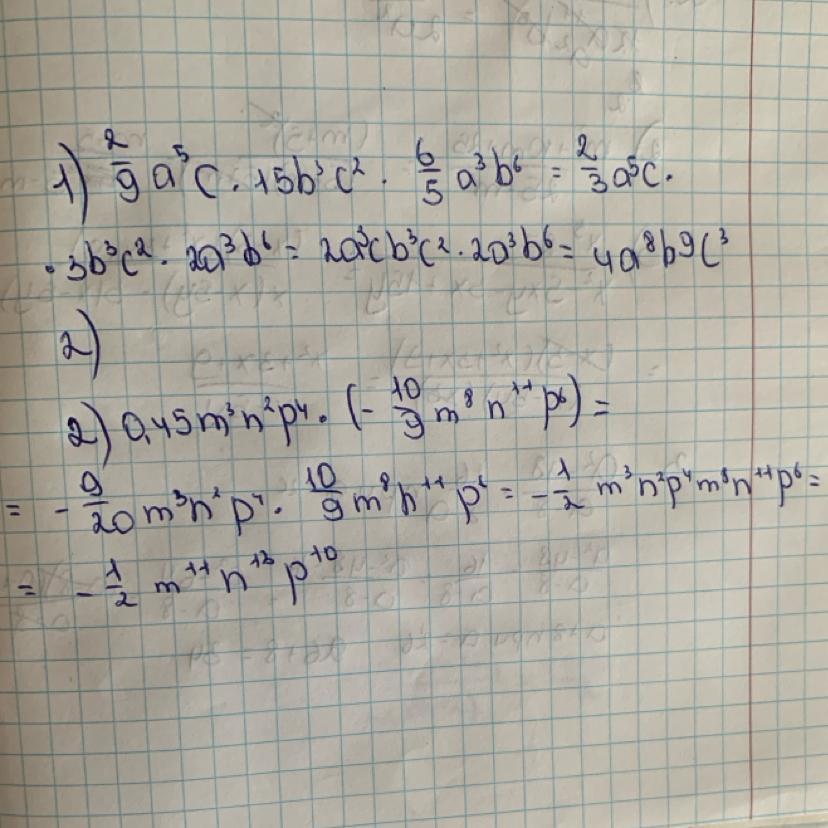 1) 2/9 a⁵c · 15b³c² · 6/5 a³b⁶ = 2/3 a⁵c ·
· 3b³c² · 2a³b⁶ = 2a³cb³c² · 2a³b⁶ = 4a⁸b9c³
2)
2) 0,45m³n²p⁴ · (- 10/9 m⁸n¹¹p⁶) =
= - 9/20 m³n²p⁴ · 10/9 m⁸n¹¹p⁶ = - 1/2 m³n²p⁴m⁸n¹¹p⁶ =
= - 1/2 m¹¹n¹³p¹⁰